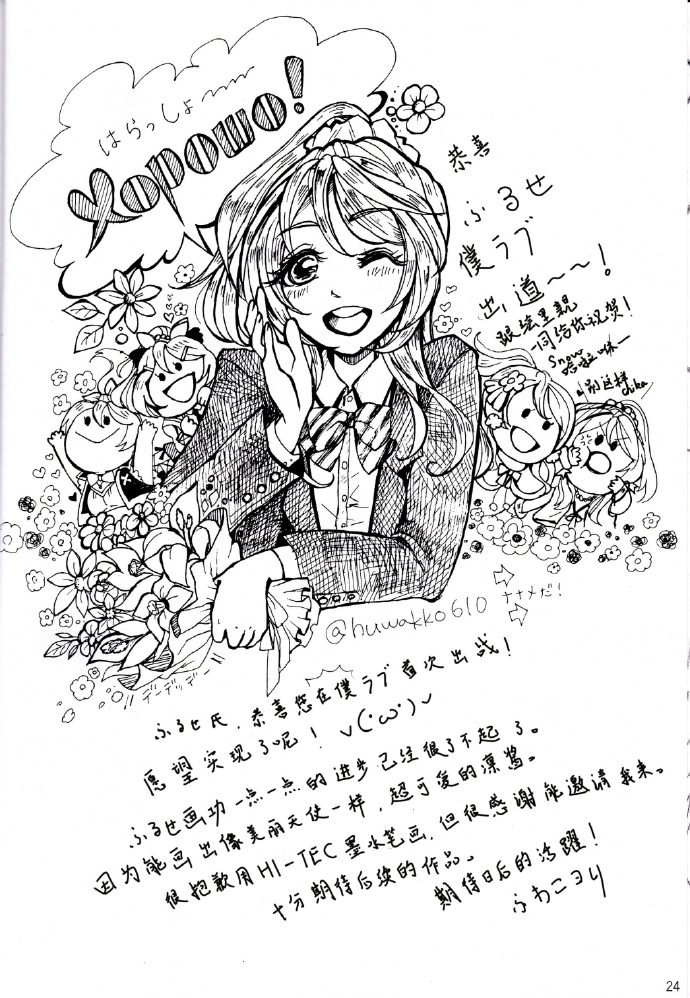 はらっしょ〜〜
Хорошо!
恭喜
ふるせ
僕ラブ
出道〜〜!
跟绘里親
一同给你祝贺!
Snow
别这样
chika
@huwakko610
ナナメだ!
デーデッデー!!
ふるせ氏,恭喜您在僕ラブ首次出战!
愿望实现了呢! v(・ω・)v
ふるせ画功一点一点的进步已经很了不起了。
因为能画出像美丽天使一样,超可爱的凛酱。
很抱歉用HI-TEC墨水笔画,但很感谢能邀请我来。
十分期待后续的作品。
期待日后的活躍!
ふわこより
24